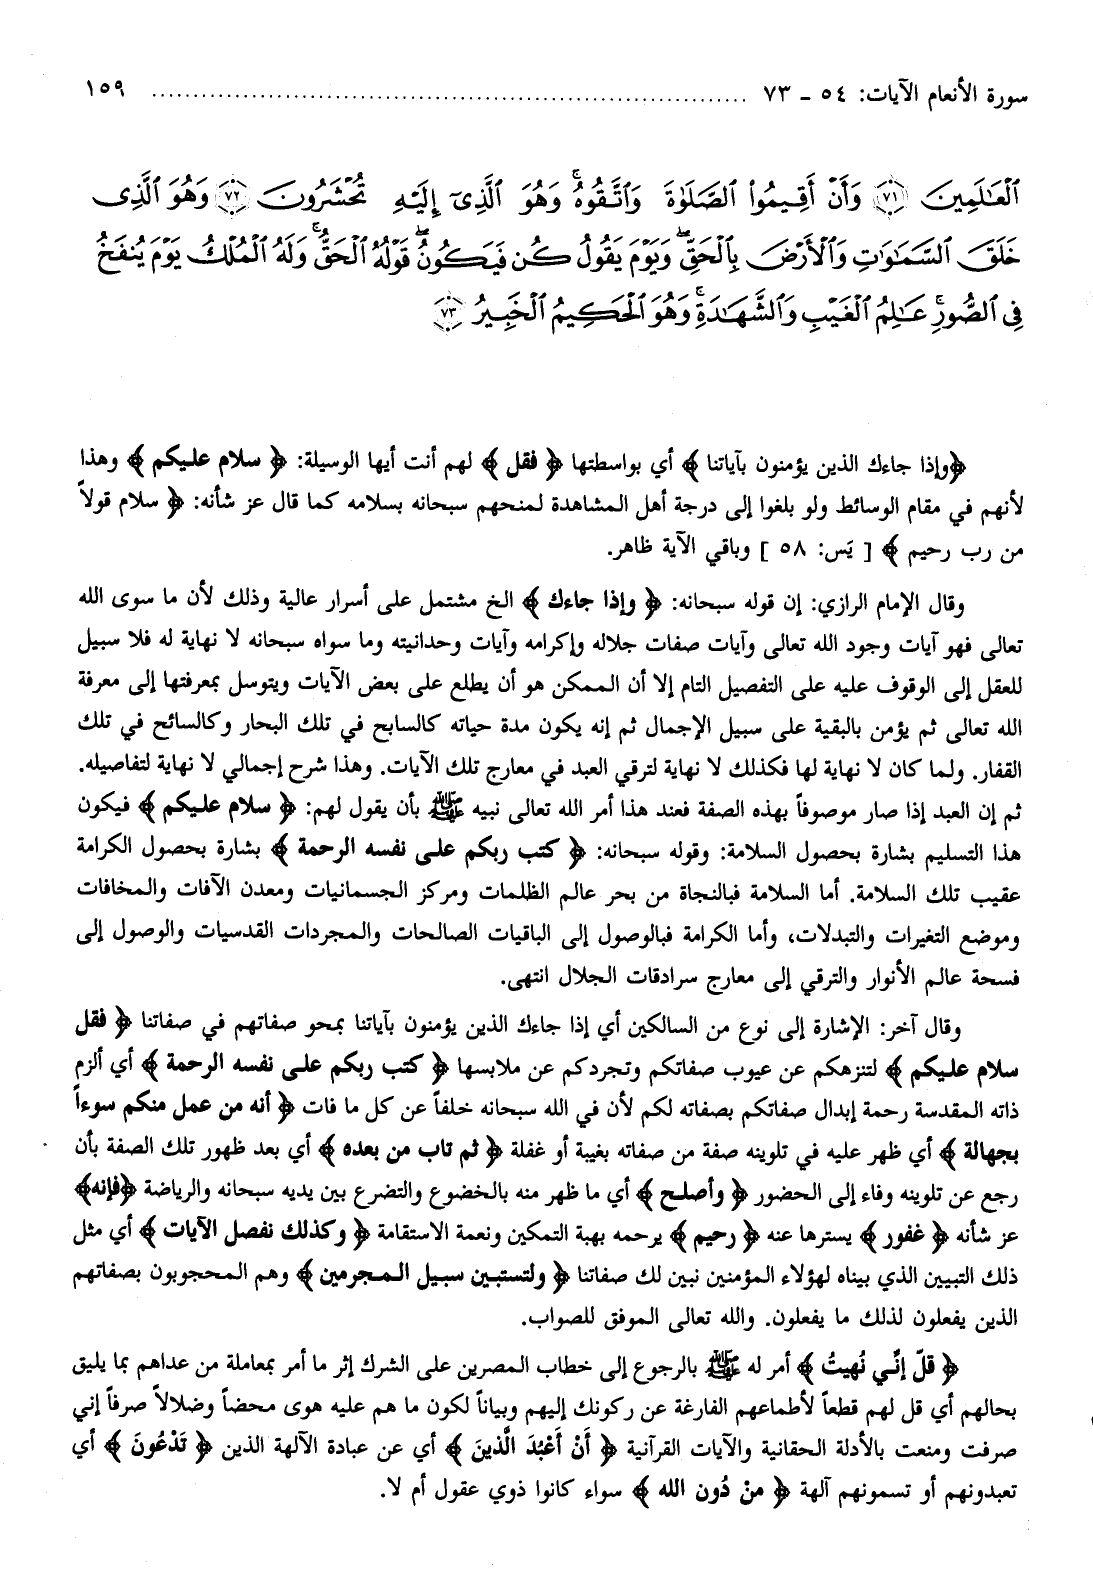 سورة الأنعام الآيات: ٥٤ ـ ٧٣ ........................................................................ ١٥٩
ٱلْعَٰلَمِينَ ۝٧١ وَأَنْ أَقِيمُوا۟ ٱلصَّلَوٰةَ وَٱتَّقُوهُ ۚ وَهُوَ ٱلَّذِىٓ إِلَيْهِ تُحْشَرُونَ ۝٧٢ وَهُوَ ٱلَّذِى
خَلَقَ ٱلسَّمَٰوَٰتِ وَٱلْأَرْضَ بِٱلْحَقِّ ۖ وَيَوْمَ يَقُولُ كُن فَيَكُونُ ۖ قَوْلُهُ ٱلْحَقُّ ۚ وَلَهُ ٱلْمُلْكُ يَوْمَ يُنفَخُ
فِى ٱلصُّورِ ۚ عَٰلِمُ ٱلْغَيْبِ وَٱلشَّهَٰدَةِ ۚ وَهُوَ ٱلْحَكِيمُ ٱلْخَبِيرُ ۝٧٣
﴿وإذا جاءك الذين يؤمنون بآياتنا﴾ أي بواسطتها ﴿فقل﴾ لهم أنت أيها الوسيلة: ﴿سلام عليكم﴾ وهذا
لأنهم في مقام الوسائط ولو بلغوا إلى درجة أهل المشاهدة لمنحهم سبحانه بسلامه كما قال عز شأنه: ﴿سلام قولاً
من رب رحيم﴾ [يَس: ٥٨] وباقي الآية ظاهر.
وقال الإمام الرازي: إن قوله سبحانه: ﴿وإذا جاءك﴾ الخ مشتمل على أسرار عالية وذلك لأن ما سوى الله
تعالى فهو آيات وجود الله تعالى وآيات صفات جلاله وإكرامه وآيات وحدانيته وما سواه سبحانه لا نهاية له فلا سبيل
للعقل إلى الوقوف عليه على التفصيل التام إلا أن الممكن هو أن يطلع على بعض الآيات ويتوسل بمعرفتها إلى معرفة
الله تعالى ثم يؤمن بالبقية على سبيل الإجمال ثم إنه يكون مدة حياته كالسابح في تلك البحار وكالسائح في تلك
القفار. ولما كان لا نهاية لها فكذلك لا نهاية لترقي العبد في معارج تلك الآيات. وهذا شرح إجمالي لا نهاية لتفاصيله.
ثم إن العبد إذا صار موصوفاً بهذه الصفة فعند هذا أمر الله تعالى نبيه ﷺ بأن يقول لهم: ﴿سلام عليكم﴾ فيكون
هذا التسليم بشارة بحصول السلامة: وقوله سبحانه: ﴿كتب ربكم على نفسه الرحمة﴾ بشارة بحصول الكرامة
عقيب تلك السلامة. أما السلامة فبالنجاة من بحر عالم الظلمات ومركز الجسمانيات ومعدن الآفات والمخافات
وموضع التغيرات والتبدلات، وأما الكرامة فبالوصول إلى الباقيات الصالحات والمجردات القدسيات والوصول إلى
فسحة عالم الأنوار والترقي إلى معارج سرادقات الجلال انتهى.
وقال آخر: الإشارة إلى نوع من السالكين أي إذا جاءك الذين يؤمنون بآياتنا بمحو صفاتهم في صفاتنا ﴿فقل
سلام عليكم﴾ لتنزهكم عن عيوب صفاتكم وتجردكم عن ملابسها ﴿كتب ربكم على نفسه الرحمة﴾ أي ألزم
ذاته المقدسة رحمة إبدال صفاتكم بصفاته لكم لأن في الله سبحانه خلفاً عن كل ما فات ﴿أنه من عمل منكم سوءاً
بجهالة﴾ أي ظهر عليه في تلوينه صفة من صفاته بغيبة أو غفلة ﴿ثم تاب من بعده﴾ أي بعد ظهور تلك الصفة بأن
رجع عن تلوينه وفاء إلى الحضور ﴿وأصلح﴾ أي ما ظهر منه بالخضوع والتضرع بين يديه سبحانه والرياضة ﴿فإنه﴾
عز شأنه ﴿غفور﴾ يسترها عنه ﴿رحيم﴾ يرحمه بهبة التمكين ونعمة الاستقامة ﴿وكذلك نفصل الآيات﴾ أي مثل
ذلك التبيين الذي بيناه لهؤلاء المؤمنين نبين لك صفاتنا ﴿ولتستبين سبيل المجرمين﴾ وهم المحجوبون بصفاتهم
الذين يفعلون لذلك ما يفعلون. والله تعالى الموفق للصواب.
﴿قلّ إنّي نُهيتُ﴾ أمر له ﷺ بالرجوع إلى خطاب المصرين على الشرك إثر ما أمر بمعاملة من عداهم بما يليق
بحالهم أي قل لهم قطعاً لأطماعهم الفارغة عن ركونك إليهم وبياناً لكون ما هم عليه هوى محضاً وضلالاً صرفاً إني
صرفت ومنعت بالأدلة الحقانية والآيات القرآنية ﴿أَنْ أَعْبُدَ الَّذينَ﴾ أي عن عبادة الآلهة الذين ﴿تَدْعُونَ﴾ أي
تعبدونهم أو تسمونهم آلهة ﴿منْ دُون الله﴾ سواء كانوا ذوي عقول أم لا.